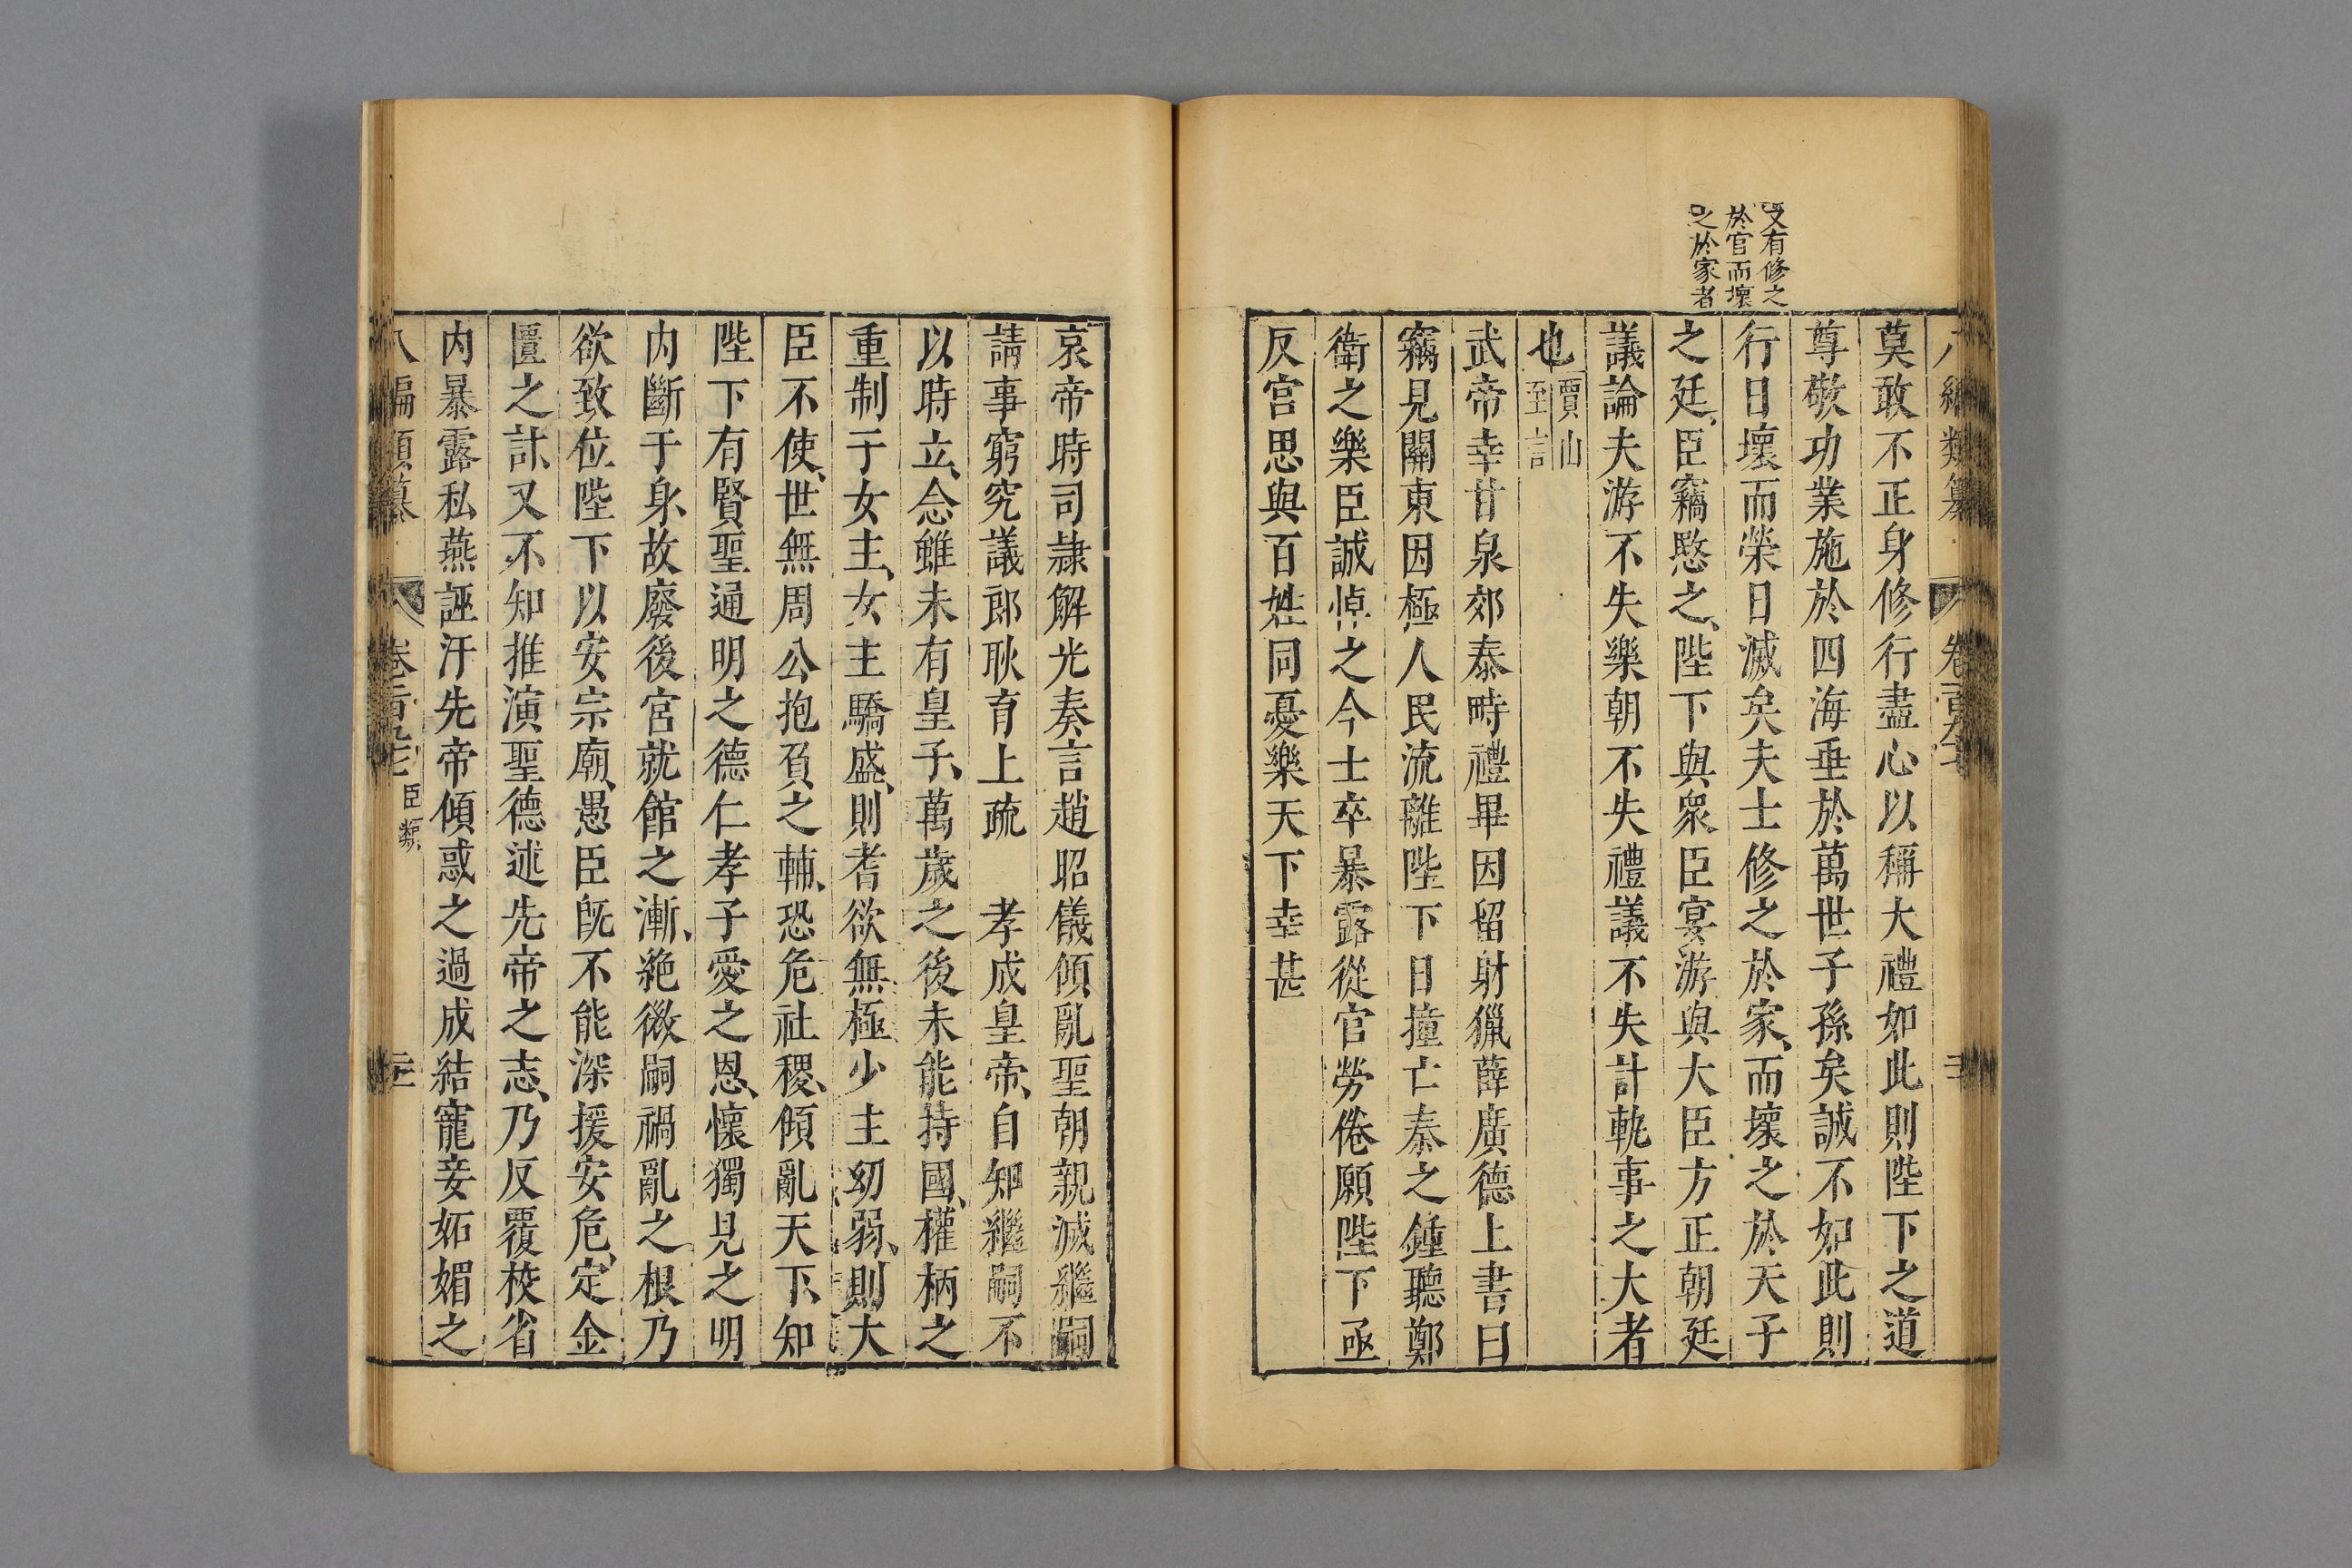 又有修之
於官而壞
之於家者
莫敢不正身修行盡心以稱大禮如此則陛下之道
尊敬功業施於四海垂於萬世子孫矣誠不如此則
行日壞而榮日滅矣夫士修之於家而壞之於天子
之廷臣竊愍之陛下與衆臣宴游與大臣方正朝廷
議論夫游不失樂朝不失禮議不失計軌事之大者
也賈山至言
武帝幸甘泉郊泰畤禮畢因留射獵薛廣德上書曰
竊見關東因極人民流離陛下日撞亡秦之鍾聽鄭
衛之樂臣誠悼之今士卒暴露從官勞倦願陛下亟
反宮思與百姓同憂樂天下幸甚
哀帝時司隷解光奏言趙昭儀傾亂聖朝親滅繼嗣
請事窮究議郎耿育上疏　孝成皇帝自知繼嗣不
以時立念雖未有皇子萬歲之後未能持國權柄之
重制于女主女主驕盛則耆欲無極少主幼弱則大
臣不使世無周公抱負之輔恐危社稷傾亂天下知
陛下有賢聖通明之德仁孝子愛之恩懷獨見之明
内斷于身故廢後宮就館之漸絶微嗣禍亂之根乃
欲致位陛下以安宗廟愚臣既不能深援安危定金
匱之計又不知推演聖德述先帝之志乃反覆校省
内暴露私燕誣汙先帝傾惑之過成結寵妾妬媚之
八編類纂　卷 臣類